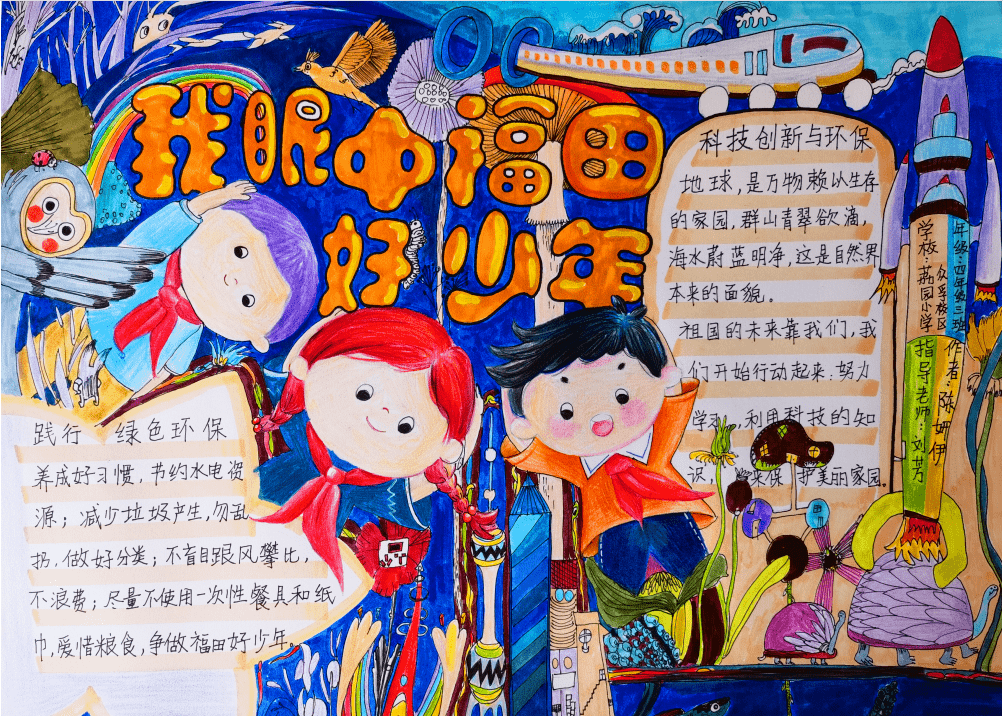 我眼中福田
好少年
科技创新与环保
地球，是万物赖以生存
的家园，群山青翠欲滴，
海水蔚蓝明净，这是自然界
本来的面貌。
祖国的未来靠我们，我
们开始行动起来：努力
学利用科技的知
识，来保护美丽家园。
学校：荔园小学
众孚校区
年级：四年级三班
作者：陈妍伊
指导老师：刘芳
践行 绿色环保
养成好习惯，节约水电资
源；减少垃圾产生，勿乱
扔，做好分类；不盲目跟风攀比，
不浪费；尽量不使用一次性餐具和纸
巾，爱惜粮食，争做福田好少年。